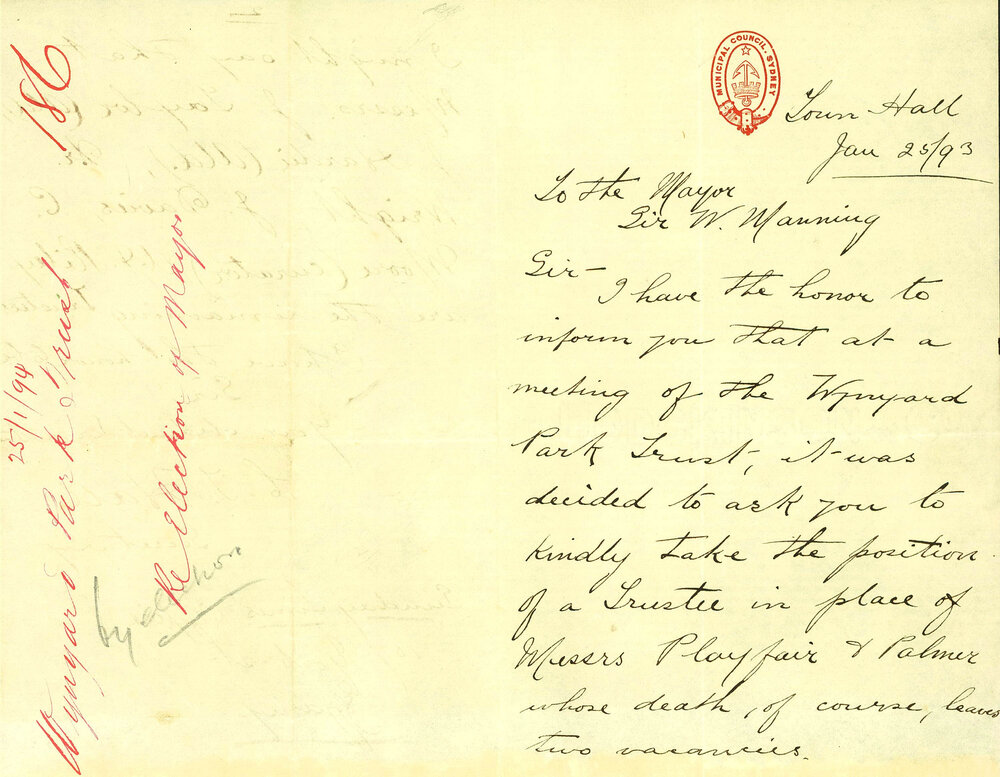 186
25/1/94
Wynyard Park Trust
Re Election of Mayor
MUNICIPAL COUNCIL. SYDNEY
Town Hall
Jan 25/93
To the Mayor
Sir W. Manning
Sir –
I have the honor to
inform you that at a
meeting of the Wynyard
Park Trust, it was
decided to ask you to
kindly take the position
of a Trustee in place of
Messrs Playfair & Palmer
whose death, of course, leaves
two vacancies.